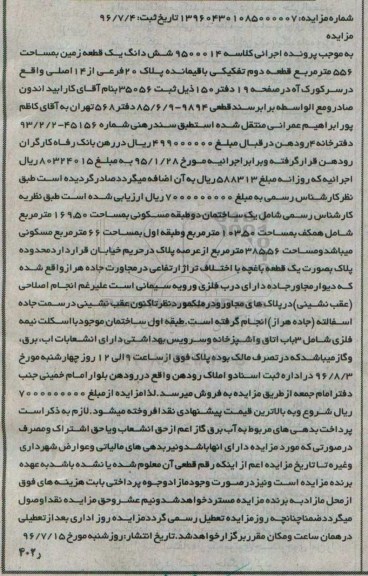 شماره مزایده: ۱۳۹۶۰۴۳۰۱۰۸۵۰۰۰۰۰۷ تاریخ ثبت: ۹۶/۷/۴
مزایده
به موجب پرونده اجرائی کلاسه ۹۵۰۰۰۱۴ شش دانگ یک قطعه زمین بمساحت
۵۵۶ مترمربع قطعه دوم تفکیکی باقیمانده پلاک ۲۰ فرعی از ۱۴ اصلی واقع
در سرکورک آه در صفحه ۱۹ دفتر ۱۵۰ ذیل ثبت ۳۵۰۵۶ بنام آقای کارابید اندون
صادر ومع الواسطه برابر سند قطعی ۹۸۹۴-۸۵/۶/۹ دفتر ۵۶۸ تهران به آقای کاظم
پور ابراهیم عمرانی منتقل شده است طبق سند رهنی شماره ۴۵۱۵۶-۹۳/۲/۲
دفترخانه ۴ رودهن در قبال مبلغ ۴۹۹۰۰۰۰۰۰ ریال در رهن بانک رفاه کارگران
رودهن قرار گرفته و برابر اجرائیه مورخ ۹۵/۱/۲۸ به مبلغ ۸۰۳۲۴۰۱۵ ریال
اجرائیه که روزانه مبلغ ۵۸۸۳۱۳ ریال به آن اضافه میگردد صادر گردیده است طبق
نظر کارشناس رسمی به مبلغ ۷۰۰۰۰۰۰۰۰۰ ریال ارزیابی شده است طبق نظریه
کارشناس رسمی شامل یک ساختمان دوطبقه مسکونی بمساحت ۱۶۹۵۰ مترمربع
شامل همکف بمساحت ۱۰۳۵۰ مترمربع وطبقه اول بمساحت ۶۶ مترمربع مسکونی
میباشد ومساحت ۳۸۵۵۶ مترمربع از عرصه پلاک در حریم خیابان قرار دارد محدوده
پلاک بصورت یک قطعه باغچه با اختلاف تراز ارتفاعی در مجاورت جاده هراز واقع شده
که دیوار مجاور جاده دارای درب فلزی ورویه سیمانی است علیرغم انجام اصلاحی
(عقب نشینی) در پلاک های مجاور ودر ملک مورد نظر تاکنون عقب نشینی در سمت جاده
اسفالته (جاده هراز) انجام گرفته است. طبقه اول ساختمان موجود با اسکلت نیمه
فلزی شامل ۳ باب اتاق و اشپزخانه وسرویس بهداشتی دارای انشعابات اب، برق،
وگاز میباشد که در تصرف مالک بوده پلاک فوق از ساعت ۹ الی ۱۲ روز چهارشنبه مورخ
۹۶/۸/۳ در اداره ثبت اسناد و املاک رودهن واقع در رودهن بلوار امام خمینی جنب
دفتر امام جمعه از طریق مزایده به فروش میرسد. لذا مزایده از مبلغ ۷۰۰۰۰۰۰۰۰۰
ریال شروع و به بالاترین قیمت پیشنهادی نقدا فروخته میشود. لازم به ذکر است
پرداخت بدهی های مربوط به آب برق گاز اعم از حق انشعاب ویا حق اشتراک ومصرف
در صورتی که مورد مزایده دارای انها باشد ونیز بدهی های مالیاتی وعوارض شهرداری
وغیره تا تاریخ مزایده اعم از اینکه رقم قطعی آن معلوم شده یا نشده باشد به عهده
برنده مزایده است ونیز در صورت وجود مازاد وجوه پرداختی بابت هزینه های فوق
از محل مازاد به برنده مزایده مسترد خواهد شد ونیم عشر وحق مزایده نقدا وصول
میگردد ضمنا چنانچه روز مزایده تعطیل رسمی گردد مزایده روز اداری بعد از تعطیلی
در همان ساعت ومکان مقرر برگزار خواهد شد. تاریخ انتشار: روز شنبه مورخ ۹۶/۷/۱۵
۴۰۲ر